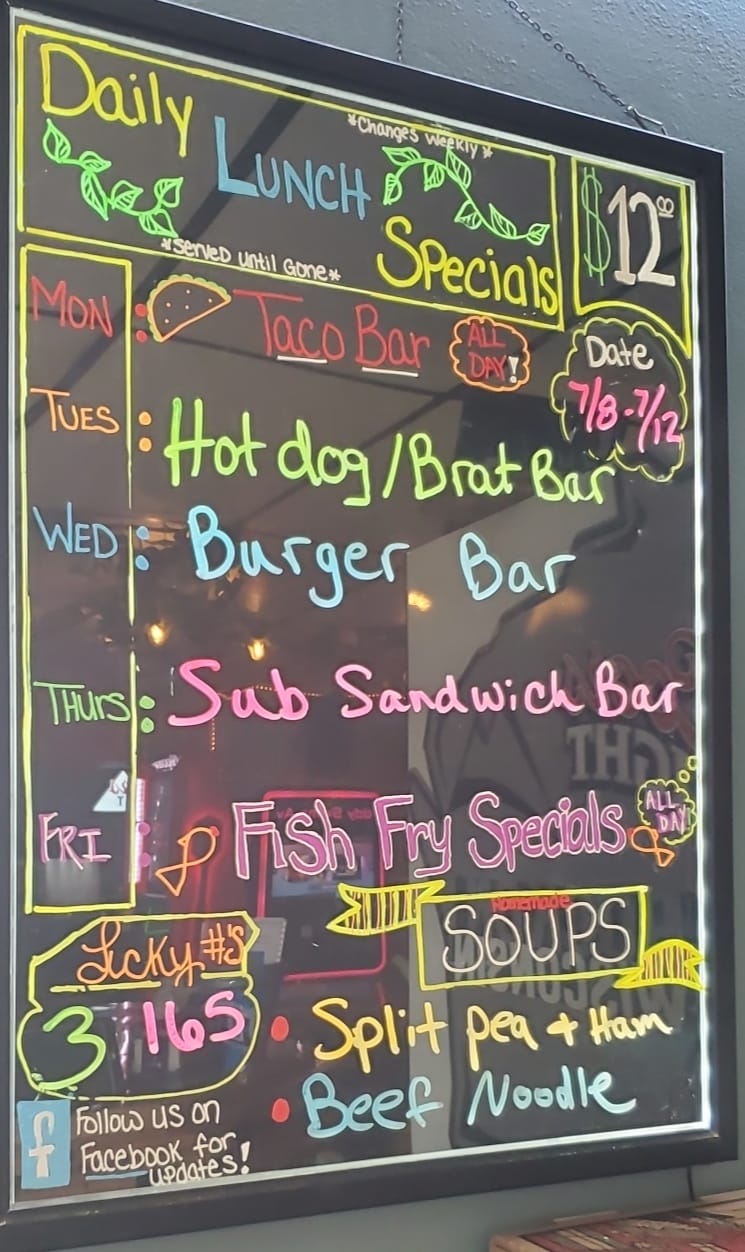 Daily
*Changes Weekly*
LUNCH
*Served Until Gone*
Specials
$12
Date
7/8-7/12
MON : Taco Bar ALL DAY!
TUES : Hot dog/Brat Bar
WED : Burger Bar
THURS : Sub Sandwich Bar
FRI : Fish Fry Specials ALL DAY!
Homemade
SOUPS
Lucky #'s
3 165
• Split pea + Ham
• Beef Noodle
f Follow us on
Facebook for
updates!